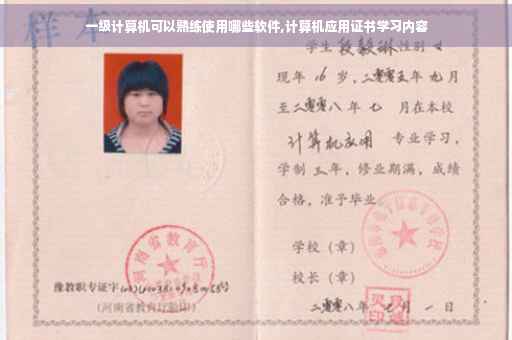 样本
一级计算机可以熟练使用哪些软件,计算机应用证书学习内容
学生 段毅琳 性别 女
现年 16 岁，二零零五年 九月
至二零零八年 七 月在本校
计算机应用 专业学习，
学制 三年，修业期满，成绩
合格，准予毕业
学校（章）
校长（章）
二零零八年 七 月 一 日
河南省教育厅
豫教职专证字
（河南省教育厅验印）